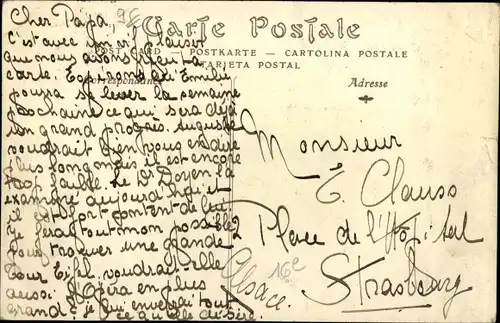 Cher Papa,
96
Carte Postale
C'est avec un vrai plaisir
POST CARD — POSTKARTE — CARTOLINA POSTALE
que nous avons reçu ta
TARJETA POSTAL
carte. Espérons qu'Emilie
Correspondance
Adresse
pourra se lever la semaine
prochaine ce qui sera déjà
un grand progrès. Auguste
voudrait bien vous en dire
plus long mais il est encore
trop faible. Le Dr Doyen l'a
examiné aujourd'hui et
il est fort content de lui.
Je ferai tout mon possible
pour trouver une grande
Tour Eiffel. voudrait-elle
aussi l'Opéra en plus
grand? je lui enverrai tout
ce qu'elle désire.
Monsieur
E. Clauss
2 Place de l'Hôpital
Strasbourg
Alsace.
16e